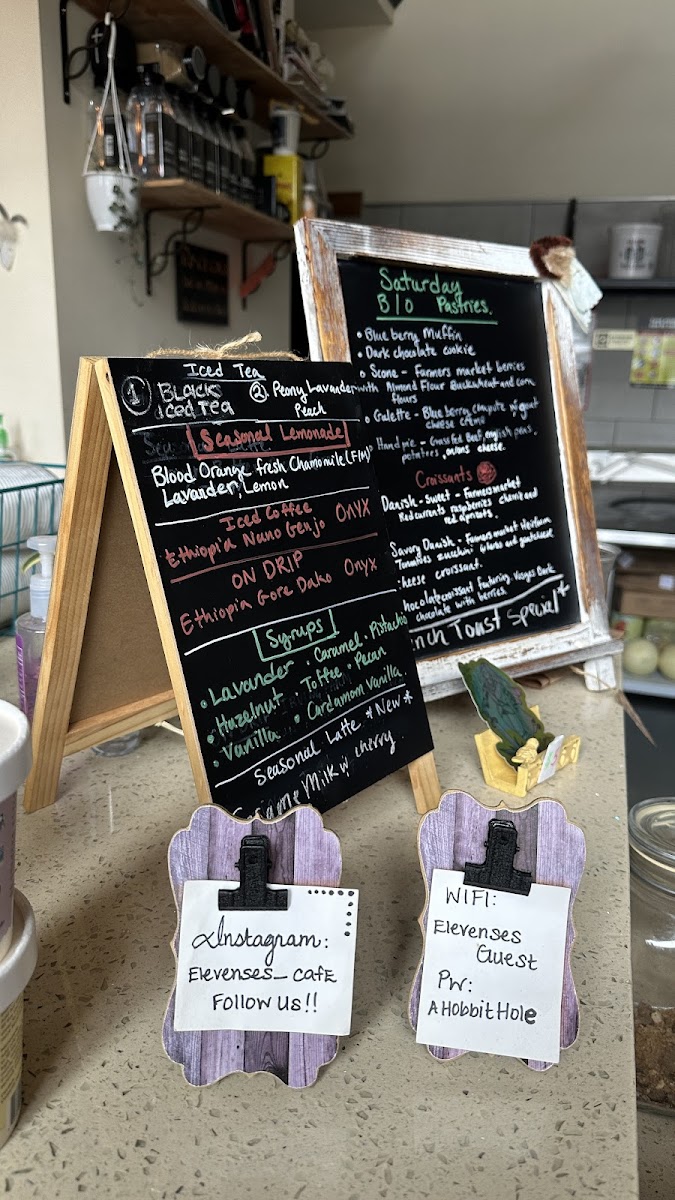 Iced Tea
① BLACK
Iced TEA
② Peony Lavender
Peach
Seasonal Lemonade
Blood Orange, fresh Chamomile
Lavender, Lemon
Iced Coffee
Ethiopia Nano Genjo Onyx
ON DRIP
Ethiopia Gore Dako Onyx
Syrups
• Lavender • Caramel • Pistachio
• Hazelnut • Toffee • Pecan
• Vanilla • Cardamom Vanilla
Seasonal Latte * New *
Milk w cherry
Saturday
B/O Pastries
• Blueberry Muffin
• Dark chocolate cookie
• Scone - Farmers market berries
with Almond Flour Buckwheat and corn
flours
• Galette - Blueberry, compote
cheese crème
• Hand pie - Grassfed Beef, english peas,
potatoes, cheese
Croissants
Danish - Sweet - Farmers market
Red currants raspberries cherries and
red apricots
Savory Danish - Farmers market Heirloom
Tomatoes zucchini and
cheese croissant.
chocolate croissant featuring Dark
chocolate with berries
French Toast Special *
Instagram:
Elevenses_cafe
Follow us!!
WIFI:
Elevenses
Guest
PW:
AHobbitHole